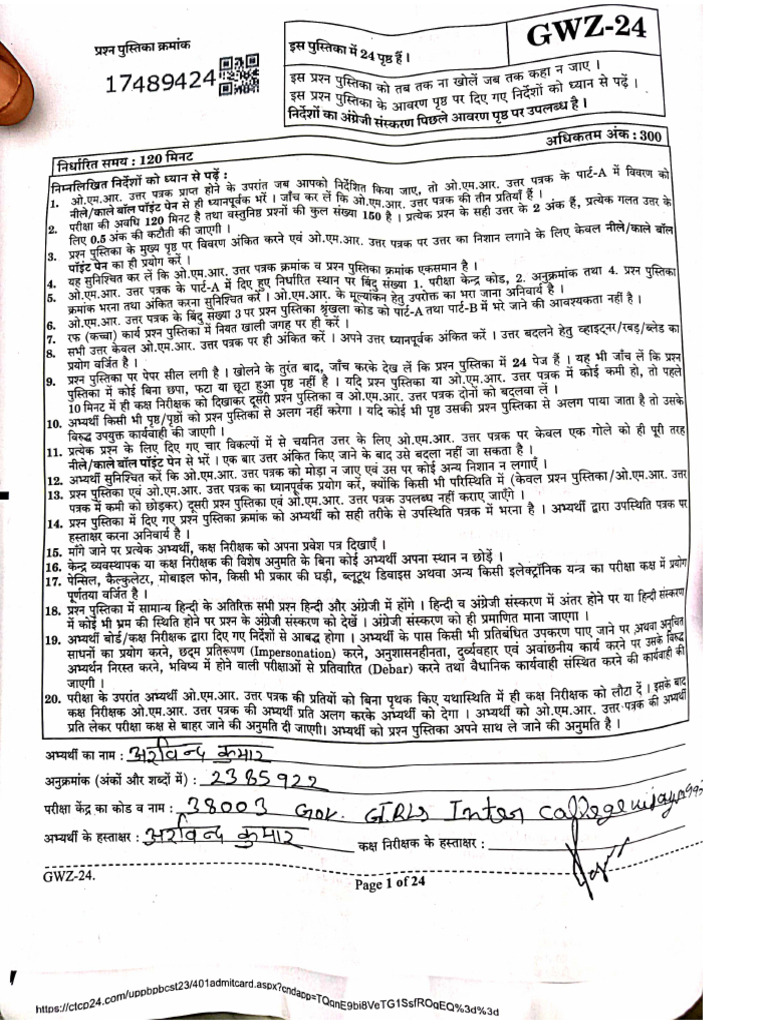 प्रश्न पुस्तिका क्रमांक
17489424
इस पुस्तिका में 24 पृष्ठ हैं।
GWZ-24
इस प्रश्न पुस्तिका को तब तक ना खोलें जब तक कहा न जाए।
इस प्रश्न पुस्तिका के आवरण पृष्ठ पर दिए गए निर्देशों को ध्यान से पढ़ें।
निर्देशों का अंग्रेजी संस्करण पिछले आवरण पृष्ठ पर उपलब्ध है।
निर्धारित समय : 120 मिनट
अधिकतम अंक : 300
निम्नलिखित निर्देशों को ध्यान से पढ़ें :
1. ओ.एम.आर. उत्तर पत्रक प्राप्त होने के उपरांत जब आपको निर्देशित किया जाए, तो ओ.एम.आर. उत्तर पत्रक के पार्ट-A में विवरण को
नीले/काले बॉल पॉइंट पेन से ही ध्यानपूर्वक भरें। जाँच कर लें कि ओ.एम.आर. उत्तर पत्रक की तीन प्रतियाँ हैं।
2. परीक्षा की अवधि 120 मिनट है तथा वस्तुनिष्ठ प्रश्नों की कुल संख्या 150 है। प्रत्येक प्रश्न के सही उत्तर के 2 अंक हैं, प्रत्येक गलत उत्तर के
लिए 0.5 अंक की कटौती की जाएगी।
3. प्रश्न पुस्तिका के मुख्य पृष्ठ पर विवरण अंकित करने एवं ओ.एम.आर. उत्तर पत्रक पर उत्तर का निशान लगाने के लिए केवल नीले/काले बॉल
पॉइंट पेन का ही प्रयोग करें।
4. यह सुनिश्चित कर लें कि ओ.एम.आर. उत्तर पत्रक क्रमांक व प्रश्न पुस्तिका क्रमांक एकसमान है।
5. ओ.एम.आर. उत्तर पत्रक के पार्ट-A में दिए हुए निर्धारित स्थान पर बिंदु संख्या 1. परीक्षा केन्द्र कोड, 2. अनुक्रमांक तथा 4. प्रश्न पुस्तिका
क्रमांक भरना तथा अंकित करना सुनिश्चित करें। ओ.एम.आर. के मूल्यांकन हेतु उपरोक्त का भरा जाना अनिवार्य है।
6. ओ.एम.आर. उत्तर पत्रक के बिंदु संख्या 3 पर प्रश्न पुस्तिका श्रृंखला कोड को पार्ट-A तथा पार्ट-B में भरे जाने की आवश्यकता नहीं है।
7. रफ (कच्चा) कार्य प्रश्न पुस्तिका में नियत खाली जगह पर ही करें।
8. सभी उत्तर केवल ओ.एम.आर. उत्तर पत्रक पर ही अंकित करें। अपने उत्तर ध्यानपूर्वक अंकित करें। उत्तर बदलने हेतु व्हाइटनर/रबड़/ब्लेड का
प्रयोग वर्जित है।
9. प्रश्न पुस्तिका पर पेपर सील लगी है। खोलने के तुरंत बाद, जाँच करके देख लें कि प्रश्न पुस्तिका में 24 पेज हैं। यह भी जाँच लें कि प्रश्न
पुस्तिका में कोई बिना छपा, फटा या छूटा हुआ पृष्ठ नहीं है। यदि प्रश्न पुस्तिका या ओ.एम.आर. उत्तर पत्रक में कोई कमी हो, तो पहले
10 मिनट में ही कक्ष निरीक्षक को दिखाकर दूसरी प्रश्न पुस्तिका व ओ.एम.आर. उत्तर पत्रक दोनों को बदलवा लें।
10. अभ्यर्थी किसी भी पृष्ठ/पृष्ठों को प्रश्न पुस्तिका से अलग नहीं करेगा। यदि कोई भी पृष्ठ उसकी प्रश्न पुस्तिका से अलग पाया जाता है तो उसके
विरुद्ध उपयुक्त कार्यवाही की जाएगी।
11. प्रत्येक प्रश्न के लिए दिए गए चार विकल्पों में से चयनित उत्तर के लिए ओ.एम.आर. उत्तर पत्रक पर केवल एक गोले को ही पूरी तरह
नीले/काले बॉल पॉइंट पेन से भरें। एक बार उत्तर अंकित किए जाने के बाद उसे बदला नहीं जा सकता है।
12. अभ्यर्थी सुनिश्चित करें कि ओ.एम.आर. उत्तर पत्रक को मोड़ा न जाए एवं उस पर कोई अन्य निशान न लगाएँ।
13. प्रश्न पुस्तिका एवं ओ.एम.आर. उत्तर पत्रक का ध्यानपूर्वक प्रयोग करें, क्योंकि किसी भी परिस्थिति में (केवल प्रश्न पुस्तिका/ओ.एम.आर. उत्तर
पत्रक में कमी को छोड़कर) दूसरी प्रश्न पुस्तिका एवं ओ.एम.आर. उत्तर पत्रक उपलब्ध नहीं कराए जाएँगे।
14. प्रश्न पुस्तिका में दिए गए प्रश्न पुस्तिका क्रमांक को अभ्यर्थी को सही तरीके से उपस्थिति पत्रक में भरना है। अभ्यर्थी द्वारा उपस्थिति पत्रक पर
हस्ताक्षर करना अनिवार्य है।
15. माँगे जाने पर प्रत्येक अभ्यर्थी, कक्ष निरीक्षक को अपना प्रवेश पत्र दिखाएँ।
16. केन्द्र व्यवस्थापक या कक्ष निरीक्षक की विशेष अनुमति के बिना कोई अभ्यर्थी अपना स्थान न छोड़ें।
17. पेन्सिल, कैल्कुलेटर, मोबाइल फोन, किसी भी प्रकार की घड़ी, ब्लूटूथ डिवाइस अथवा अन्य किसी इलेक्ट्रॉनिक यन्त्र का परीक्षा कक्ष में प्रयोग
पूर्णतया वर्जित है।
18. प्रश्न पुस्तिका में सामान्य हिन्दी के अतिरिक्त सभी प्रश्न हिन्दी और अंग्रेजी में होंगे। हिन्दी व अंग्रेजी संस्करण में अंतर होने पर या हिन्दी संस्करण
में कोई भी भ्रम की स्थिति होने पर प्रश्न के अंग्रेजी संस्करण को देखें। अंग्रेजी संस्करण को ही प्रमाणित माना जाएगा।
19. अभ्यर्थी बोर्ड/कक्ष निरीक्षक द्वारा दिए गए निर्देशों से आबद्ध होगा। अभ्यर्थी के पास किसी भी प्रतिबंधित उपकरण पाए जाने पर अथवा अनुचित
साधनों का प्रयोग करने, छद्म प्रतिरूपण (Impersonation) करने, अनुशासनहीनता, दुर्व्यवहार एवं अवांछनीय कार्य करने पर उसके विरुद्ध
अभ्यर्थन निरस्त करने, भविष्य में होने वाली परीक्षाओं से प्रतिवारित (Debar) करने तथा वैधानिक कार्यवाही संस्थित करने की कार्यवाही की
जाएगी।
20. परीक्षा के उपरांत अभ्यर्थी ओ.एम.आर. उत्तर पत्रक की प्रतियों को बिना पृथक किए यथास्थिति में ही कक्ष निरीक्षक को लौटा दें। इसके बाद
कक्ष निरीक्षक ओ.एम.आर. उत्तर पत्रक की अभ्यर्थी प्रति अलग करके अभ्यर्थी को देगा। अभ्यर्थी को ओ.एम.आर. उत्तर पत्रक की अभ्यर्थी
प्रति लेकर परीक्षा कक्ष से बाहर जाने की अनुमति दी जाएगी। अभ्यर्थी को प्रश्न पुस्तिका अपने साथ ले जाने की अनुमति है।
अभ्यर्थी का नाम : अरविन्द कुमार
अनुक्रमांक (अंकों और शब्दों में) : 2385922
परीक्षा केंद्र का कोड व नाम : 38003 Gov. GIRLS Inter College
अभ्यर्थी के हस्ताक्षर : अरविन्द कुमार
कक्ष निरीक्षक के हस्ताक्षर :
GWZ-24.
Page 1 of 24
https://ctcp24.com/uppbpbcst23/401admitcard.aspx?cndapp=TQqnE9bi8VeTG1SsfROqEQ%3d%3d